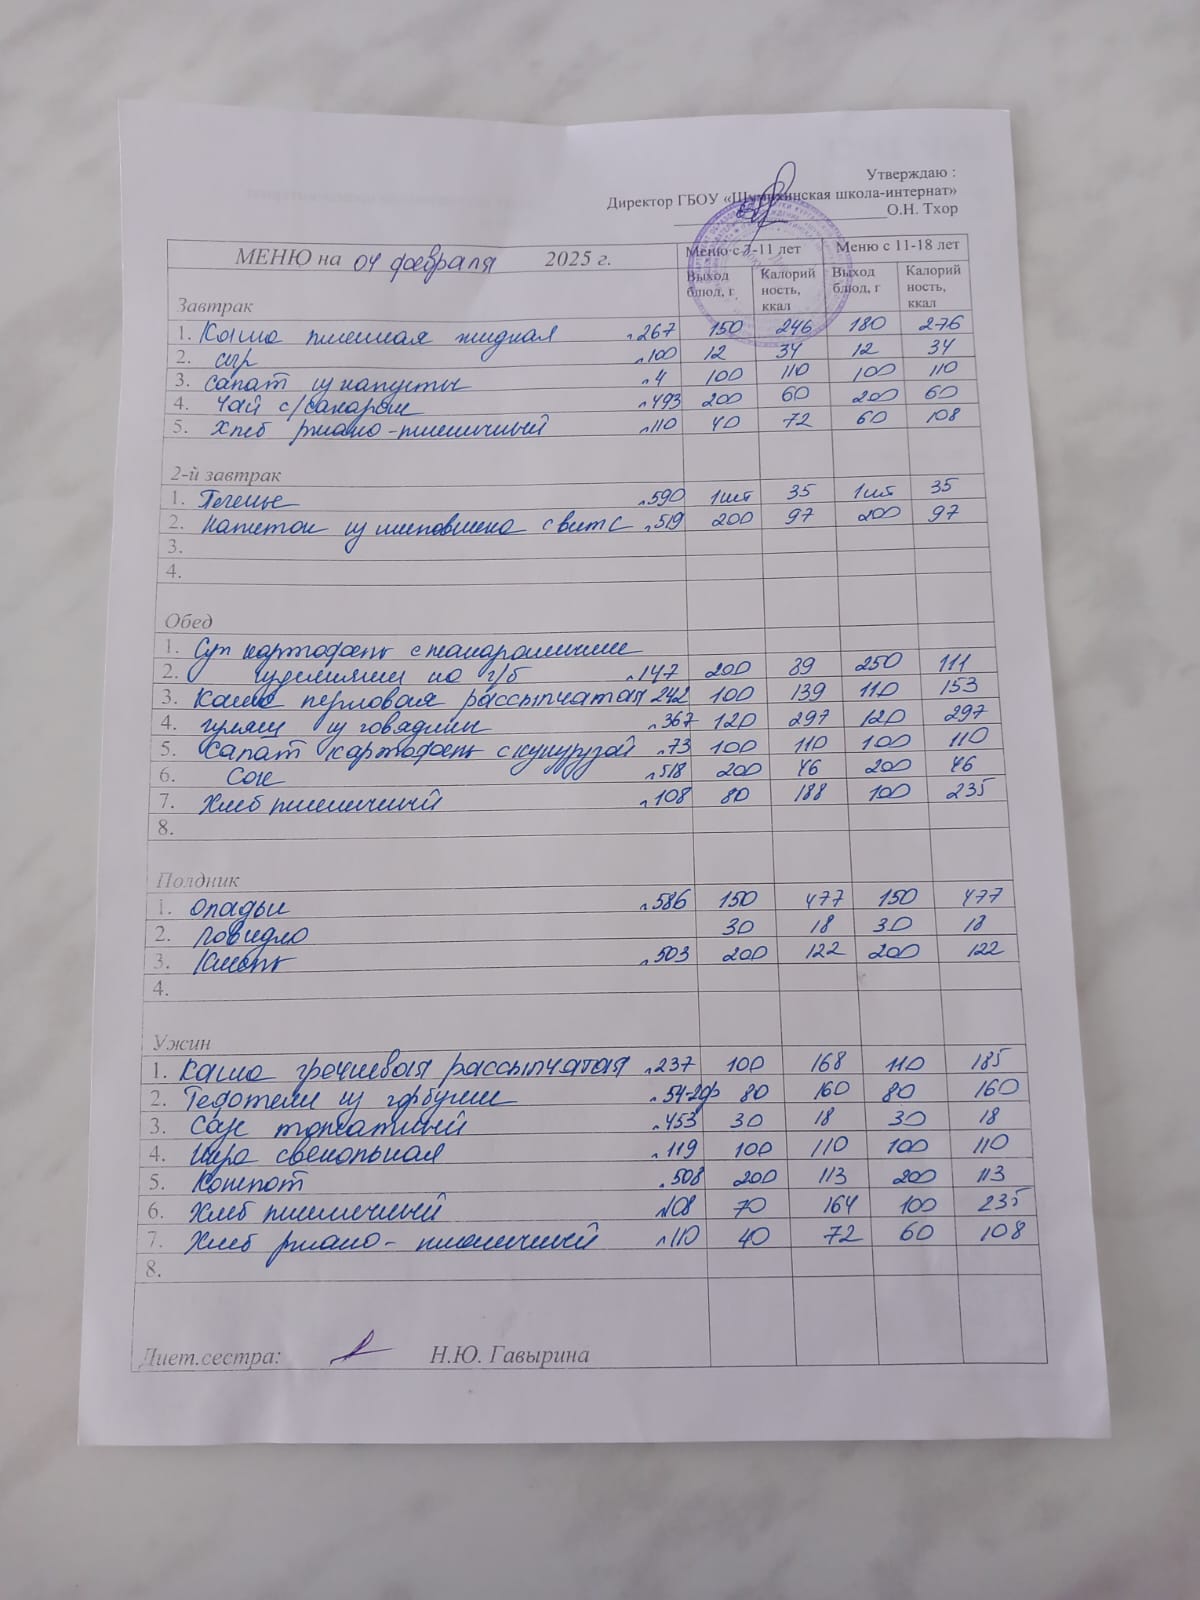 Утверждаю :
Директор ГБОУ «Шумихинская школа-интернат»
О.Н. Тхор
МЕНЮ на 04 февраля 2025 г. Меню с 7-11 лет Меню с 11-18 лет
Завтрак Выход блюд, г Калорий ность, ккал Выход блюд, г Калорий ность, ккал
1. Каша пшенная жидкая №267 150 246 180 276
2. сыр №100 12 34 12 34
3. салат из капусты №4 100 110 100 110
4. Чай с/сахаром №493 200 60 200 60
5. Хлеб ржано-пшеничный №110 40 72 60 108
2-й завтрак
1. Печенье №590 1шт 35 1шт 35
2. напиток из шиповника с вит С №519 200 97 200 97
3.
4.
Обед
1. Суп картофель с макаронными
2. изделиями на г/б №147 200 89 250 111
3. Каша перловая рассыпчатая 242 100 139 110 153
4. гуляш из говядины №367 120 297 120 297
5. Салат картофель с кукурузой №73 100 110 100 110
6. Сок №518 200 46 200 46
7. Хлеб пшеничный №108 80 188 100 235
8.
Полдник
1. Оладьи №586 150 477 150 477
2. Повидло 30 18 30 18
3. Кисель №503 200 122 200 122
4.
Ужин
1. Каша гречневая рассыпчатая №237 100 168 110 185
2. Тефтели из горбуши №54-2ф 80 160 80 160
3. Соус томатный №453 30 18 30 18
4. Икра свекольная №119 100 110 100 110
5. Компот №508 200 113 200 113
6. Хлеб пшеничный №108 70 164 100 235
7. Хлеб ржано- пшеничный №110 40 72 60 108
8.
Диет.сестра: Н.Ю. Гавырина